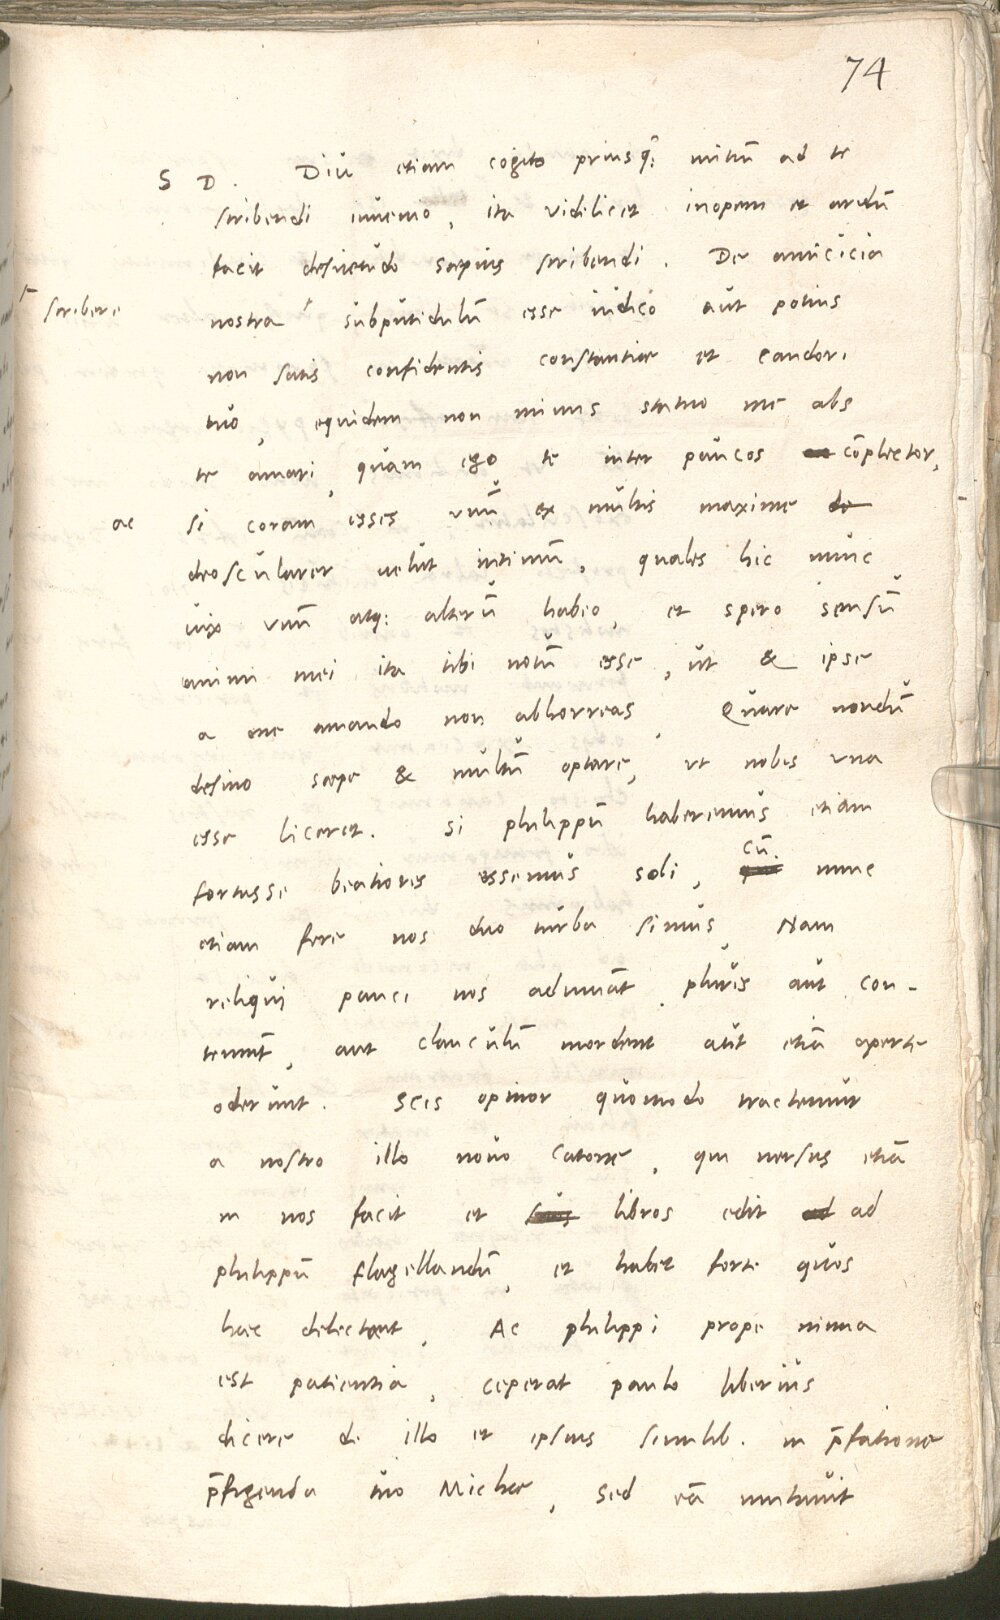 74
S D. Diu etiam cogito priusq̃: initiũ ad te
scribendi invenio, ita videlicet inopem et aridũ
facit desuetudo saepius scribendi. De amicicia
scribere
nostra ⌈ subputidulũ esse iudico aut potius
non satis confidentis constantiae et candori
tuo, equidem non minus statuo me abs
te amari, quam ego te inter paucos cõplector,
ac si coram esses vnũ ex multis maxime de
deoscularer uelut intimũ, quales hic nunc
uix vnũ atq: alterũ habeo, et spero sensũ
animi mei ita tibi notũ esse, ut & ipse
a me amando non abhorreas. Quare nondũ
desino saepe & multũ optare, vt nobis vna
esse liceret. Si philippũ haberemus etiam
fortasse beatiores essemus soli, cũ. nunc
etiam fere nos duo turba simus, Nam
reliqui pauci nos adiuuãt, pluris aut con-
temnũt, aut clanculũ mordent aut etiã aperte
oderunt. Scis opinor quomodo tractemur
a nostro illo nouo Catone, qui uersus etiã
in nos facit et suos libros edit ad ad
philippũ flagellandũ, et habet forte quos
haec delectant, Ac philippi prope nimia
est patientia, ceperat paulo liberius
dicere de illo et ipsius simlib. in p̃fatione
p̃figenda tuo Micheae, sed eã mutauit